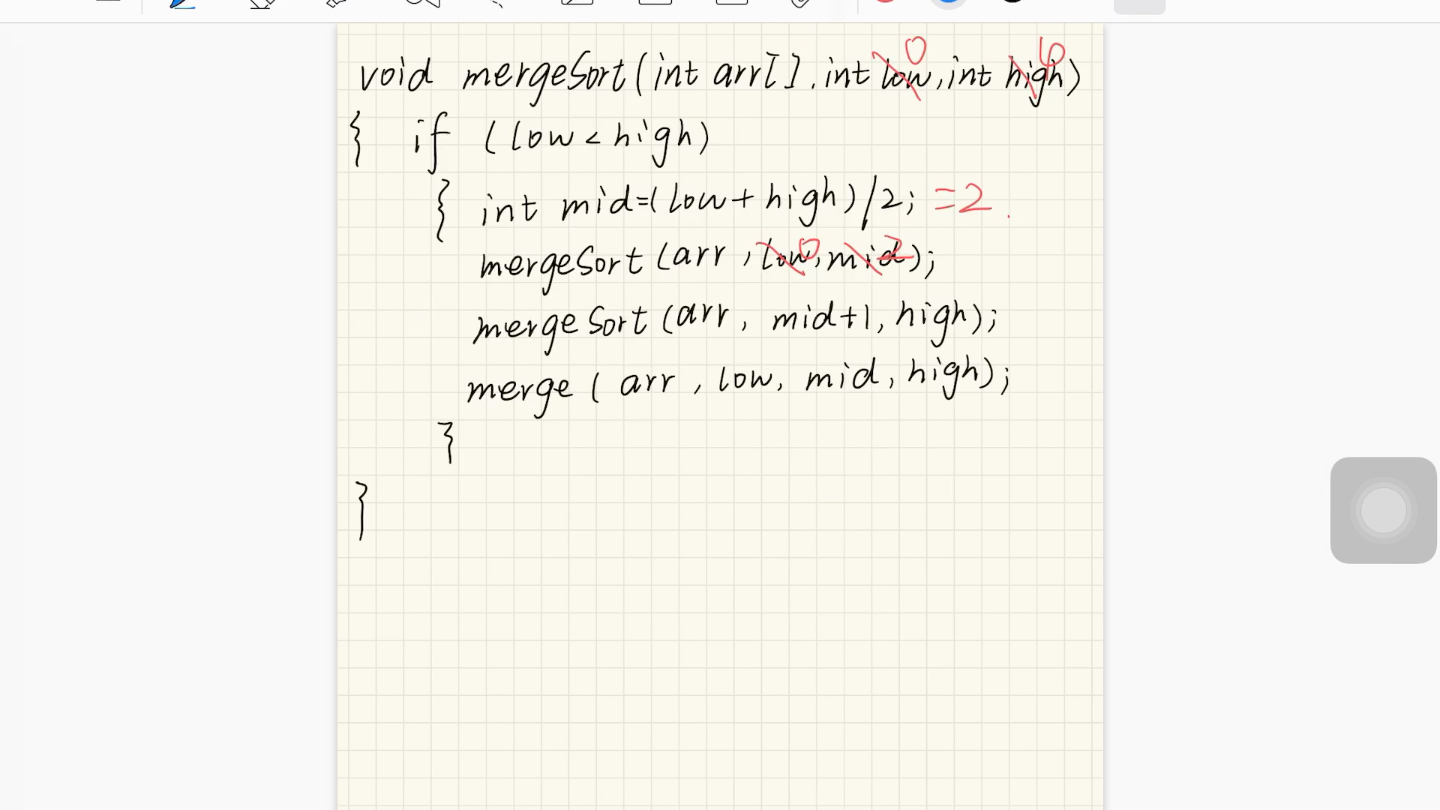 0
void mergeSort(int arr[], int low, int high)
{ if (low < high)
{ int mid=(low+high)/2; =2
mergeSort(arr, low 0, mid 2);
mergeSort(arr, mid+1, high);
merge(arr, low, mid, high);
}
}